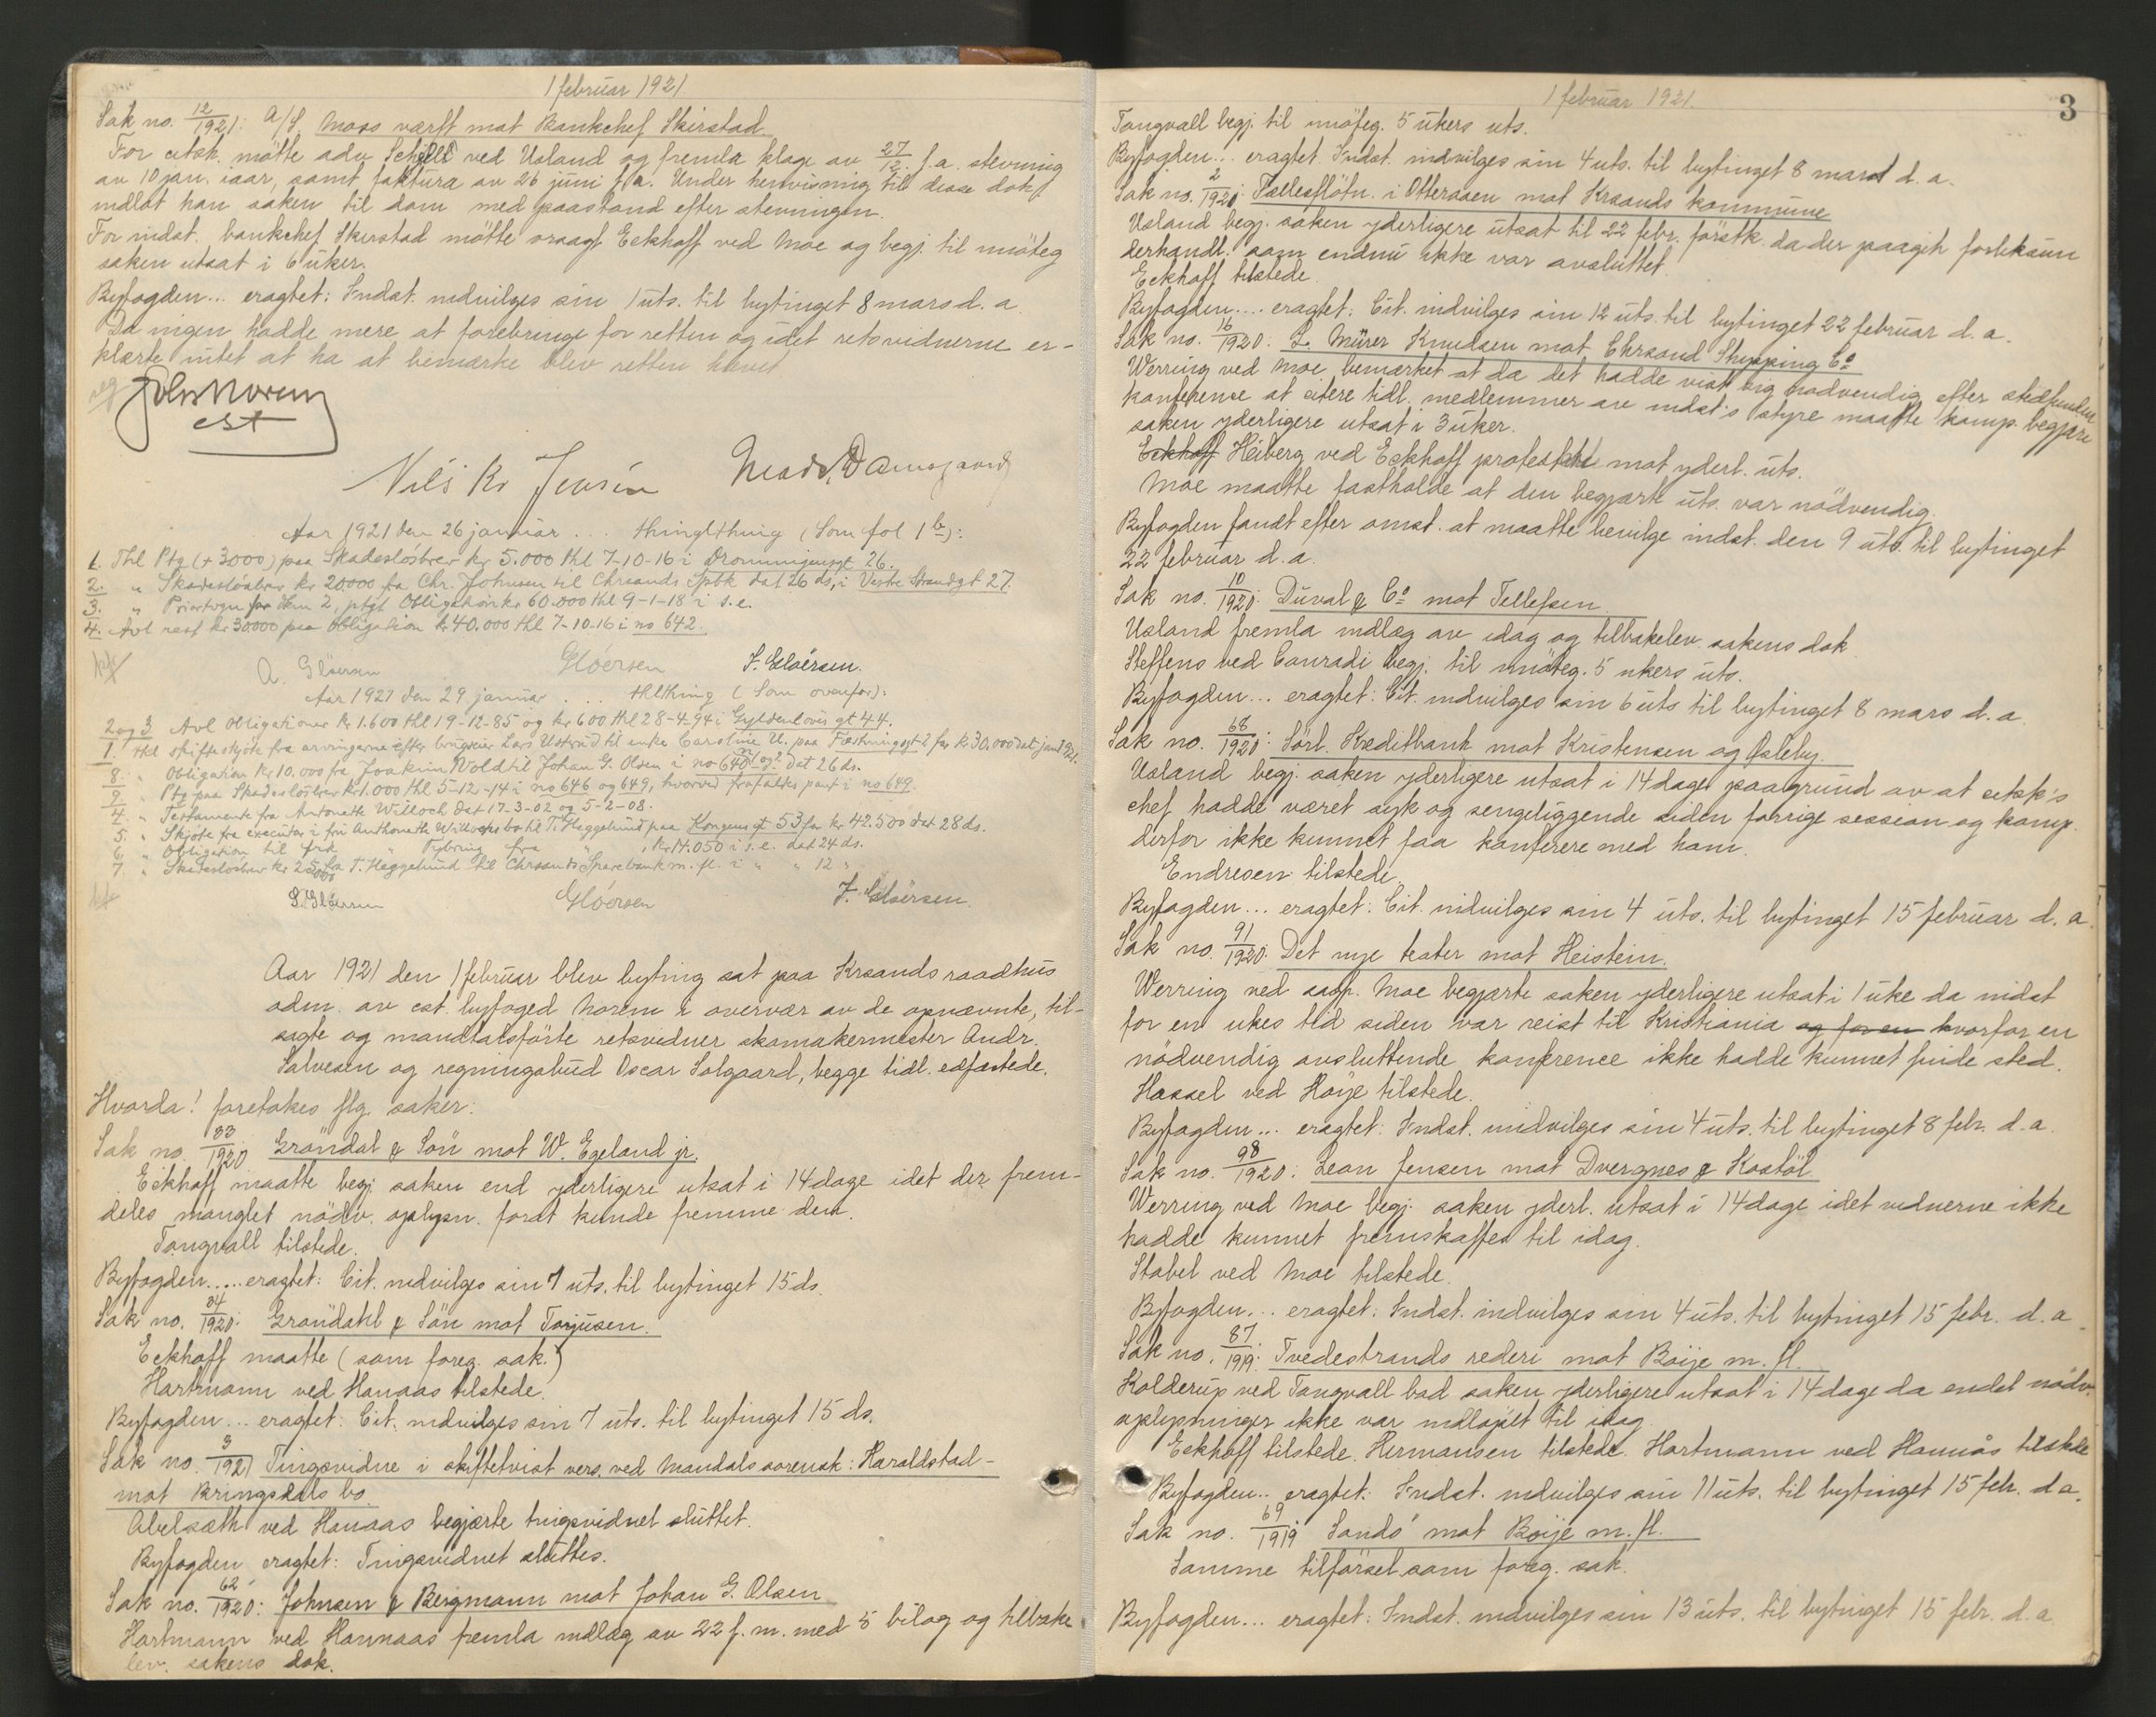 1 februar 1921
Sak no. 12/1921: A/S Moss værft mot Bankchef Skirstad
For citsk. mötte adv Schjells ved Usland og fremla klage av 27/12 f.a. stevning
av 10 jan. iaar, samt faktura av 26 juni f.a. Under henvisning til disse dok.
indlot han saken til dom med paastand efter stevningen.
For indst. bankchef Skirstad mötte orsagf. Eckhoff ved Moe og begj. til imöteg
saken utsat i 6 uker.
Byfogden... eragtet: Indst. indvilges sin 1 uts. til bytinget 8 mars d. a.
Da ingen hadde mere at forebringe for retten og idet retsvidnerne er-
klærte intet at ha at bemærke blev retten hævet
Norem
cst
Nils Kr Jensen Mads Damsgaard
Aar 1921 den 26 januar ... thinglthing (Som fol 1 b):
1. Thl Ptg (+ 3000) paa Skadeslösbrev kr 5.000 thl 7-10-16 i Dronningensgt 26.
2. " Skadeslösbrev kr 20000 fra Chr. Johnsen til Chrsands Spbk dat 26 ds, i Vestre Strandgt 27.
3. " Priortegn for No 2, ptgt Obligation kr 60.000 thl 9-1-18 i s.e.
4. Avl rest kr 30.000 paa Obligation kr 40.000 thl 7-10-16 i no 642.
A. Glöersen Glöersen F. Glöersen.
Aar 1921 den 29 januar ... thlthing (Som ovenfor):
2 og 3 Avl Obligationer kr 1.600 thl 19-12-85 og kr 600 thl 28-4-94 i Gyldenlövis gt 44.
1. thl skifteskjöte fra arvingerne efter brugseier Lars Ustrud til enke Caroline U. paa Fæstningsgt 2 for kr 30.000 dat jan 1921.
8. " Obligation kr 10.000 fra Joakim Wold til Johan G. Olsen i no 640 m og 2 dat 26 ds.
9. " Ptg paa Skadeslösbrev kr 1.000 thl 5-12-14 i no 646 og 649, hvorved frafaldes pant i no 649.
4. " Testamente fra Antonette Willoch dat 17-3-02 og 5-2-08.
5. " Skjöte fra executor i fru Anthonette Willochs bo til T. Heggelund paa Kongens gt 53 for kr 42.500 dat 28 ds.
6 " Obligation til frk " Nybring fra " , kr 11.050 i s.e. dat 24 ds.
7 " Skadeslösbrev kr 25000 fra T. Heggelund til Chrsands Sparebank m. fl. i " " 12 "
S. Glöersen Glöersen F. Glöersen.
Aar 1921 den 1 februar blev byting sat paa Krsands raadhus
adm. av cst. byfoged Norem i overvær av de opnævnte, til-
sagte og mandtalsförte retsvidner skomakermester Andr.
Salvesen og regningsbud Oscar Solgaard, begge tidl. edfæstede.
Hvorda! foretokes flg. saker:
Sak no. 83/1920 Gröndal & Sön mot W. Egeland jr.
Eckhoff maatte begj. saken end yderligere utsat i 14 dage idet der frem-
deles manglet nödv. oplysn. forat kunde fremme den.
Tangvall tilstede.
Byfogden.... eragtet: Cit. indvilges sin 7 uts. til bytinget 15 ds.
Sak no. 84/1920: Gröndahl & Sön mot Torjusen.
Eckhoff maatte (som foreg. sak.)
Hartmann ved Hanaas tilstede.
Byfogden... eragtet: Cit. indvilges sin 7 uts. til bytinget 15 ds.
Sak no. 3/1921 Tingsvidne i skiftetvist vers. ved Mandals sorensk: Haraldstad-
mot Bringsdals bo.
Abelsæth ved Hanaas begjærte tingsvidnet sluttet.
Byfogden eragtet: Tingsvidnet sluttes.
Sak no. 62/1920: Johnsen & Bergmann mot Johan G. Olsen
Hartmann ved Hannaas fremla indlæg av 22 f. m. med 5 bilag og tilbake
lev. sakens dok.
1 februar 1921.
3
Tangvall begj. til imöteg. 5 ukers uts.
Byfogden... eragtet. Indst. indvilges sin 4 uts. til bytinget 8 mars d. a.
Sak no. 2/1920: Fællesflötn. i Otteraaen mot Krsands kommune
Usland begj. saken yderligere utsat til 22 febr. förstk. da der paagik forliksun
derhandl. som endnu ikke var avsluttet.
Eckhoff tilstede.
Byfogden.... eragtet: Cit. indvilges sin 12 uts. til bytinget 22 februar d. a.
Sak no. 16/1920: L. Mürer Knudsen mot Chrsand Shipping Co
Werring ved Moe bemærket at da det hadde vist sig nödvendig efter stedfunden
konference at citere tidl. medlemmer av indst's styre maatte komp. begjære
saken yderligere utsat i 3 uker.
Eckhoff Heiberg ved Eckhoff protesterte mot yderl. uts.
Moe maatte fastholde at den begjærte uts. var nödvendig.
Byfogden fandt efter omst. at maatte bevilge indst. den 9 uts. til bytinget
22 februar d. a.
Sak no. 10/1920: Duval & Co mot Tellefsen.
Usland fremla indlæg av idag og tilbakelev. sakens dok
Steffens ved Conradi begj. til imöteg. 5 ukers uts.
Byfogden... eragtet: Cit. indvilges sin 6 uts til bytinget 8 mars d. a.
Sak no. 68/1920: Sörl. Kreditbank mot Kristensen og Osleby.
Usland begj. saken yderligere utsat i 14 dage paagrund av at citsk's
chef hadde været syk og sengeliggende siden forrige session og komp.
derfor ikke kunnet faa konferere med ham.
Endresen tilstede.
Byfogden... eragtet: Cit. indvilges sin 4 uts. til bytinget 15 februar d. a.
Sak no. 91/1920: Det nye teater mot Heistein.
Werring ved sagf. Moe begjærte saken yderligere utsat i 1 uke da indst
for en ukes tid siden var reist til Kristiania og for en hvorfor en
nödvendig avsluttende konference ikke hadde kunnet finde sted.
Hassel ved Höye tilstede.
Byfogden... eragtet: Indst. indvilges sin 4 uts. til bytinget 8 febr. d. a.
Sak no. 98/1920: Lean Jensen mot Dvergnes & Kostöl
Werring ved Moe begj. saken yderl. utsat i 14 dage idet vidnerne ikke
hadde kunnet fremskaffes til idag.
Stabel ved Moe tilstede.
Byfogden... eragtet: Indst. indvilges sin 4 uts. til bytinget 15 febr. d. a.
Sak no. 87/1919: Tvedestrands rederi mot Boije m. fl.
Kolderup ved Tangvall bad saken yderligere utsat i 14 dage da endel nödv.
oplysninger ikke var indlöpet til idag.
Eckhoff tilstede. Hermansen tilstede. Hartmann ved Hannås tilstede
Byfogden.. eragtet: Indst. indvilges sin 11 uts. til bytinget 15 febr. d a.
Sak no. 69/1919 Sandö mot Boije m. fl.
Samme tilförsel som foreg. sak.
Byfogden... eragtet: Indst. indvilges sin 13 uts. til bytinget 15 febr. d. a